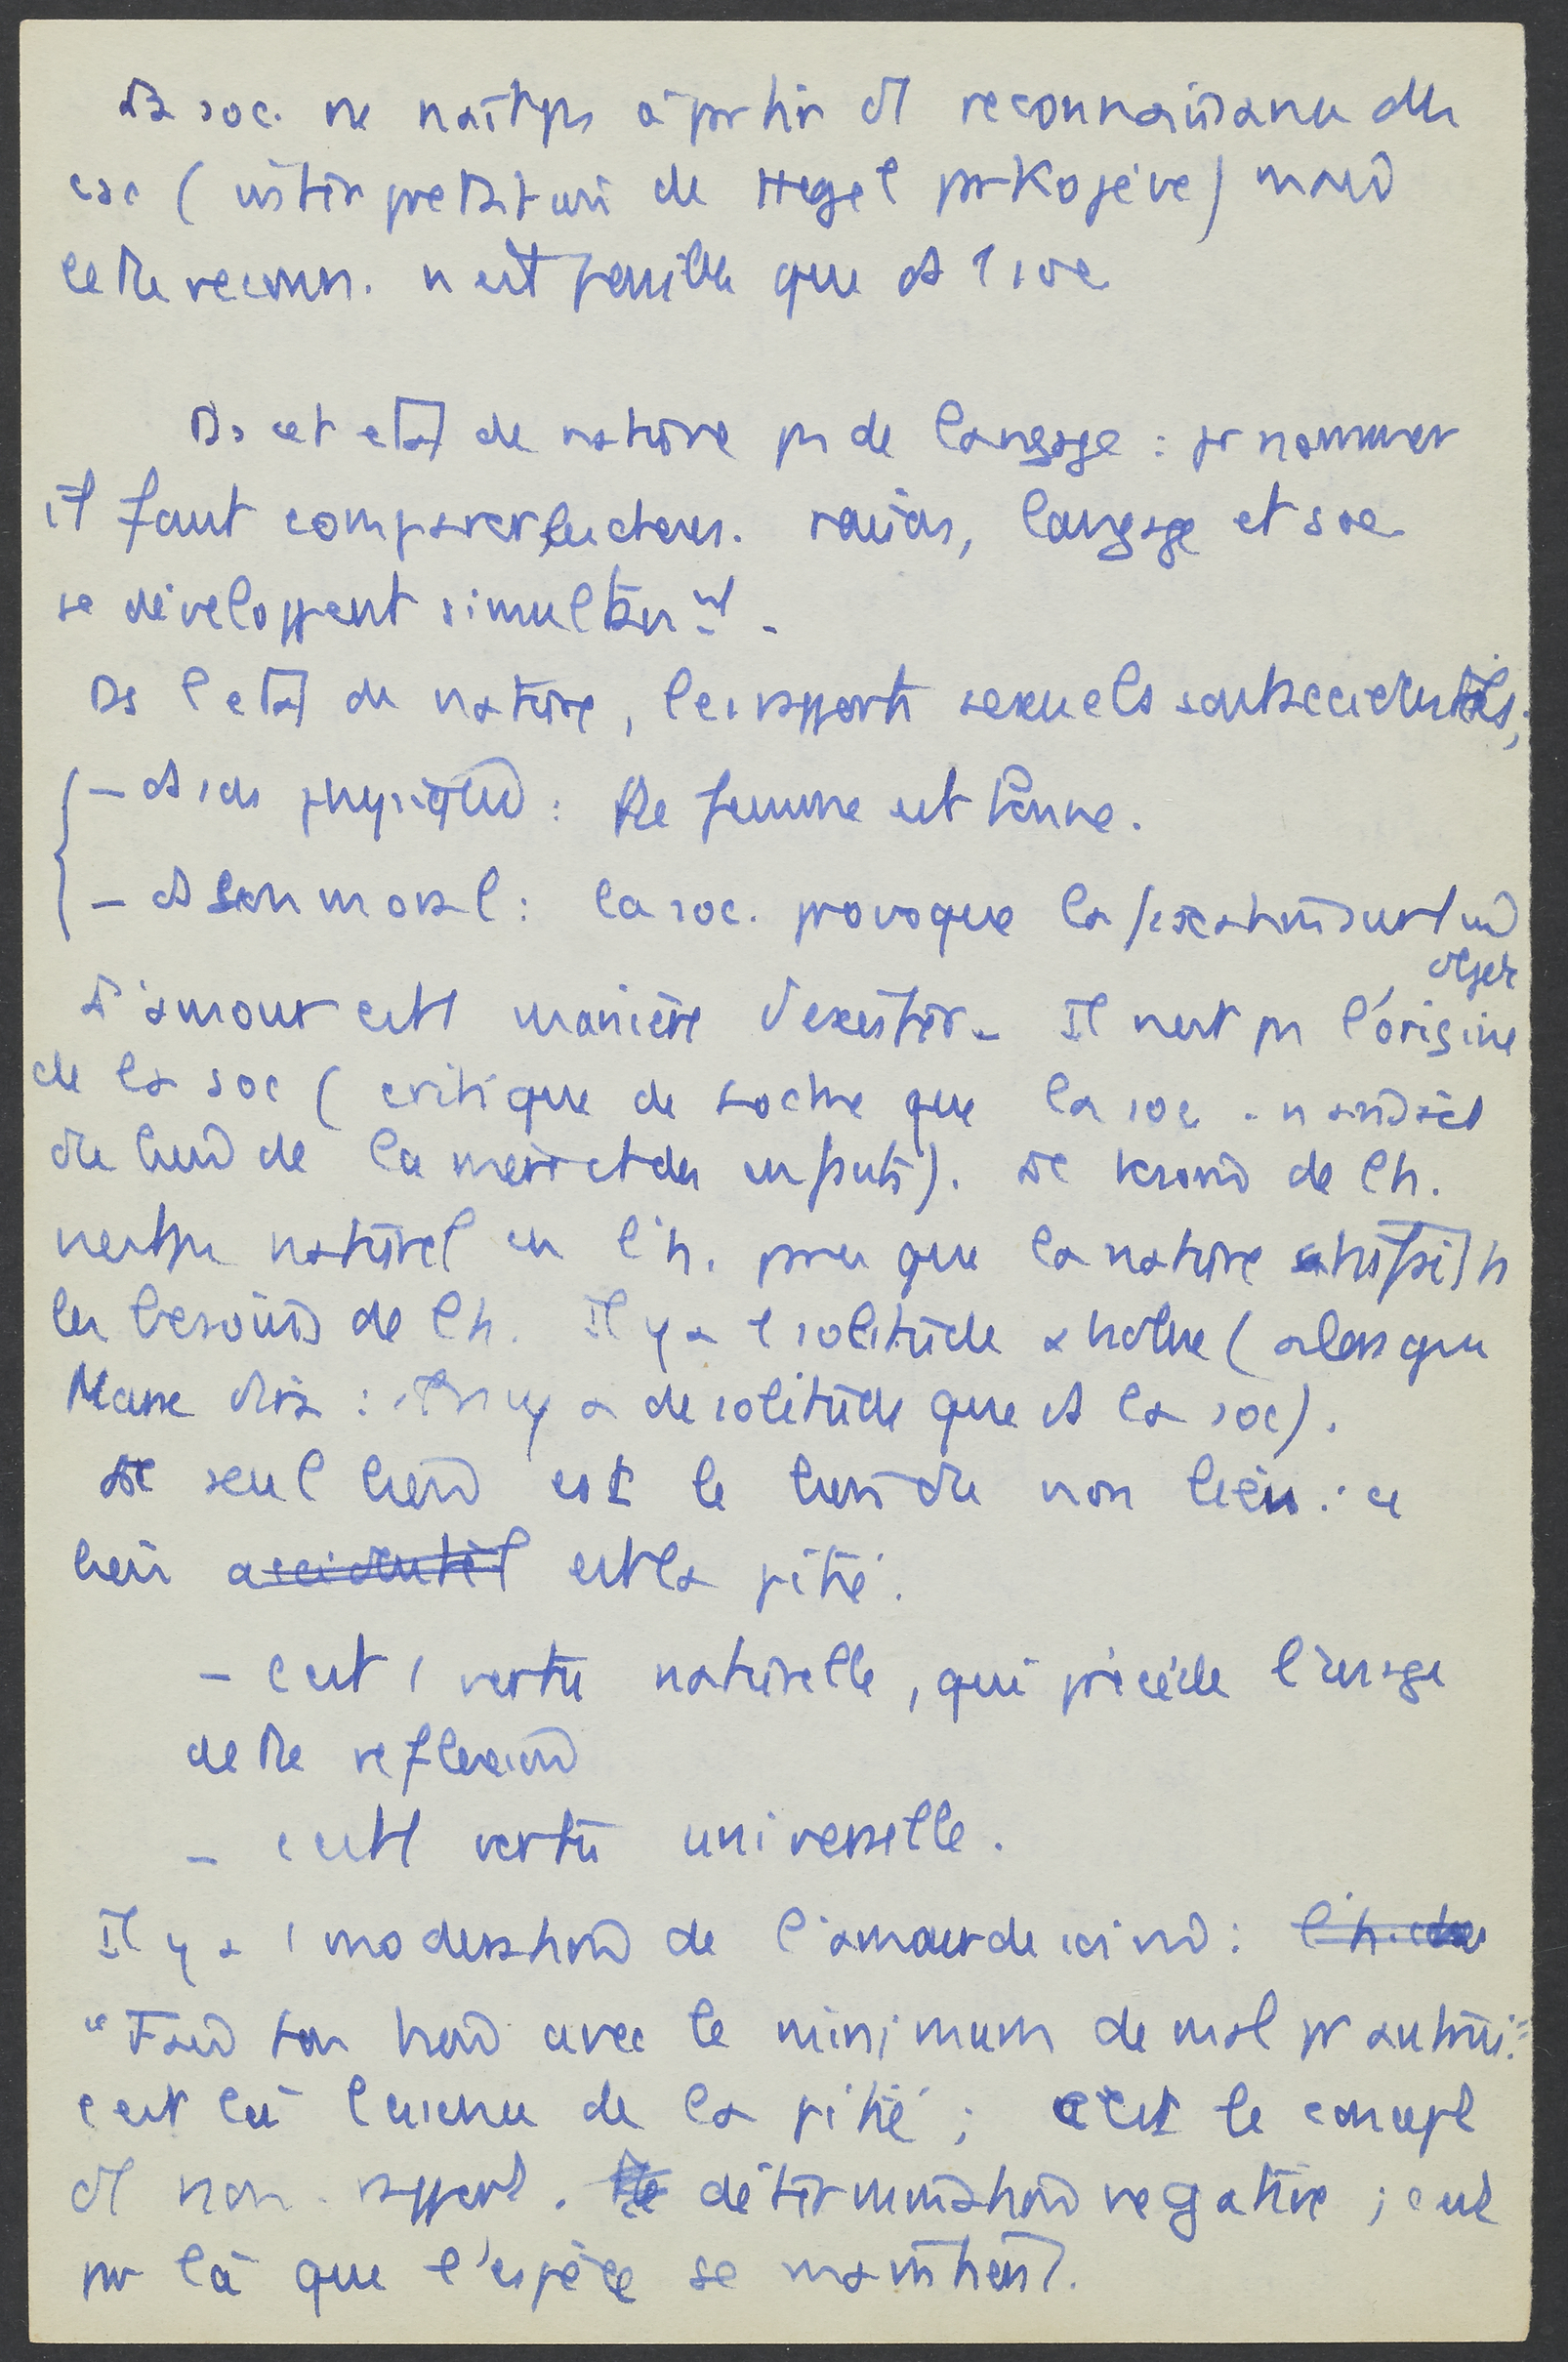 La soc. ne naît pas à partir d'1 reconnaissance des
csc (interprétation de Hegel par Kojève) mais
cette reconn. n'est possible que ds 1 soc
Ds cet état de nature pas de langage : pr nommer
il faut comparer les choses. raison, langage et soc
se développent simultaném^t.
Ds l'état de nature, les rapports sexuels sont accidentels ;
{ – ds sens physique : la femme est bonne.
– ds sens moral : la soc. provoque la
objet
L'amour est 1 manière d'exister. Il n'est pas l'origine
de la soc (critique de Locke que la soc. naisse
du lien de la mère et des enfants). Le besoin de l'h.
n'est pas naturel en l'h. parce que la nature satisfait
les besoins de l'h. Il y a 1 solitude (alors que
Marx dira : il n'y a de solitude que ds la soc).
Le seul lien est le lien du non lien : ce
lien accidentel est la pitié.
– c'est 1 vertu naturelle, qui précède l'usage
de la réflexion
– c'est 1 vertu universelle.
Il y a 1 modération de l'amour de soi :
"Fais ton bien avec le minimum de mal pr autrui"
c'est là l'essence de la pitié ; c'est le concept
d'1 non-rapport. détermination négative ; c'est
par là que l'espèce se maintient.